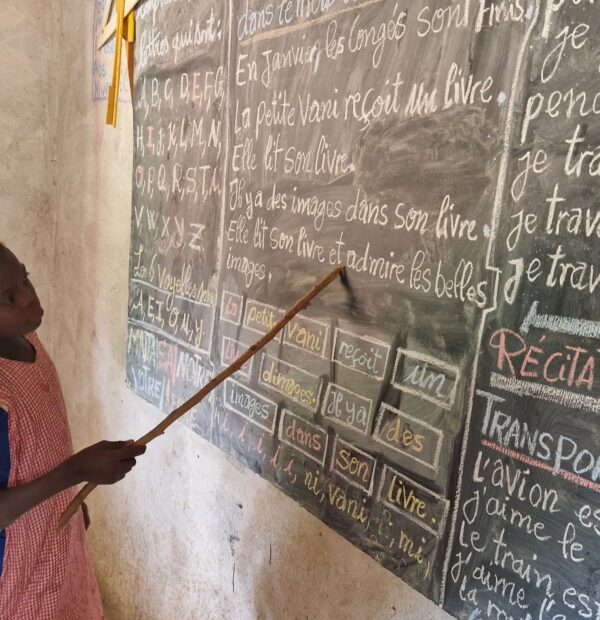 lettres qui sont:
A, B, C, D, E, F, G
H, I, J, K, L, M, N,
O, P, Q, R, S, T, U
V, W, X, Y, Z
Les 6 voyelles sont
A, E, I, O, U, Y
dans
En Janvier, les congés sont finis.
La petite Vani reçoit un livre.
Elle lit son livre.
Il y a des images dans son livre.
Elle lit son livre et admire les belles
images.
La petite Vani reçoit un
d'images. Il y a des
images dans son livre.
i, i, i, i, i, ni, vani, li, mi,
je
je
je tra
je trava
je trava
Je trava
RÉCITA
TRANSPOR
L'avion es
j'aime le
Le train es
j'aime l